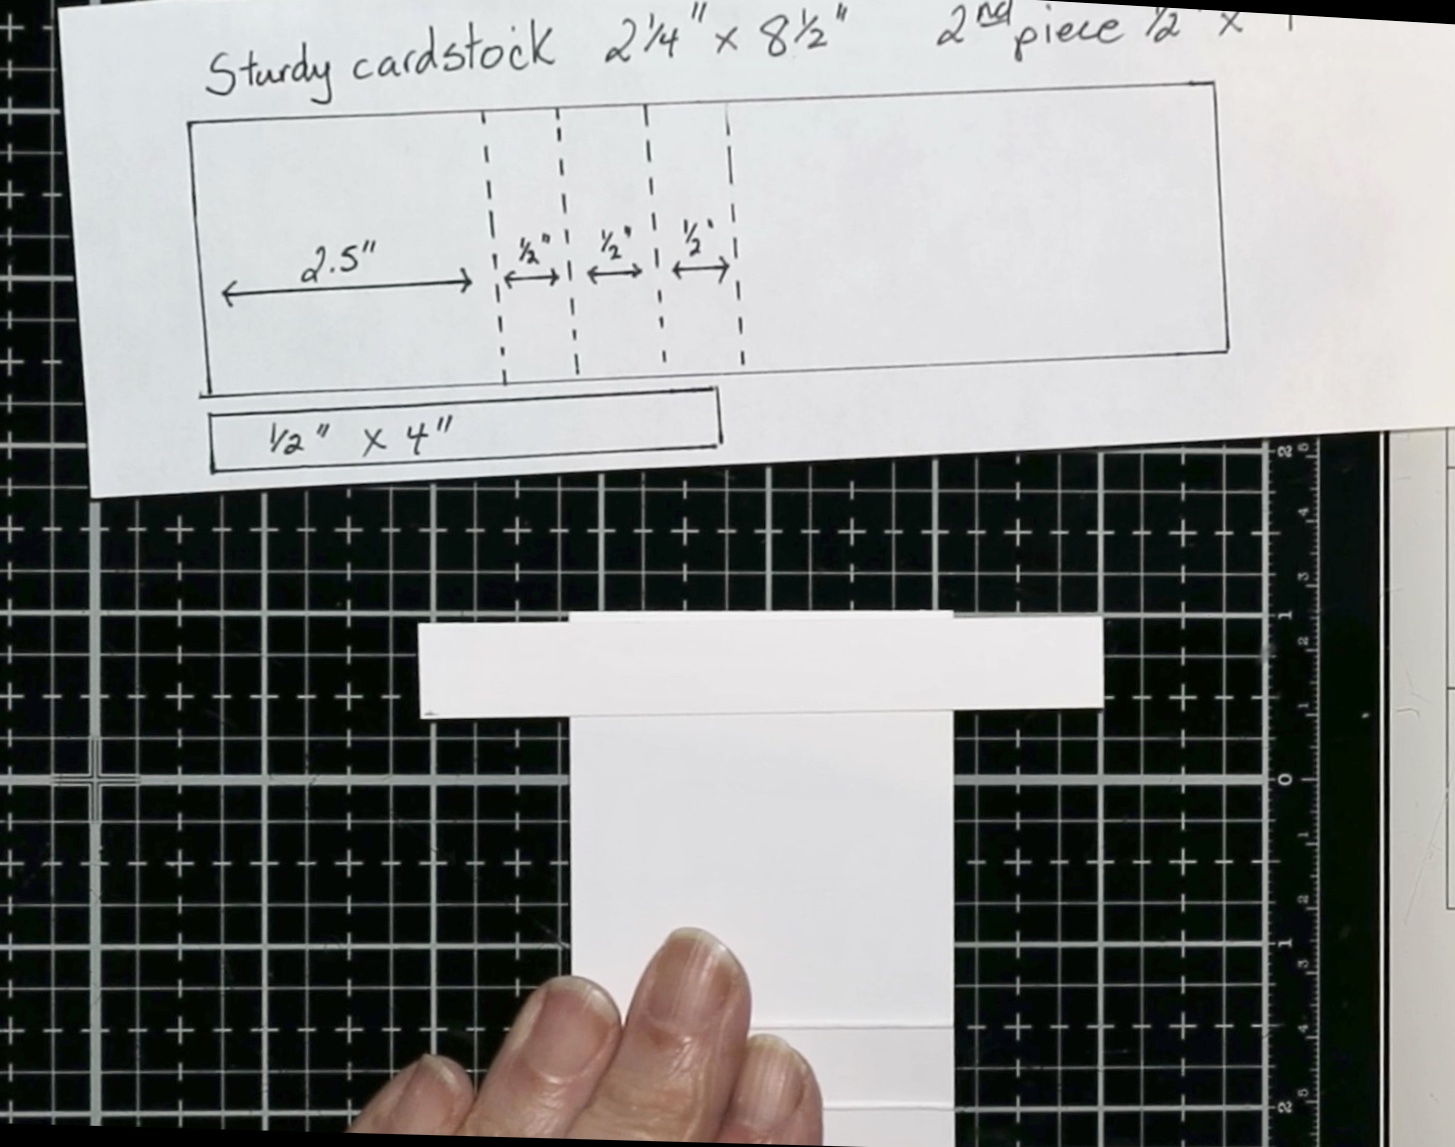 Sturdy cardstock 2¼" x 8½" 2nd piece ½" x
2.5" ½" ½" ½"
½" x 4"
2
1
0
1
2